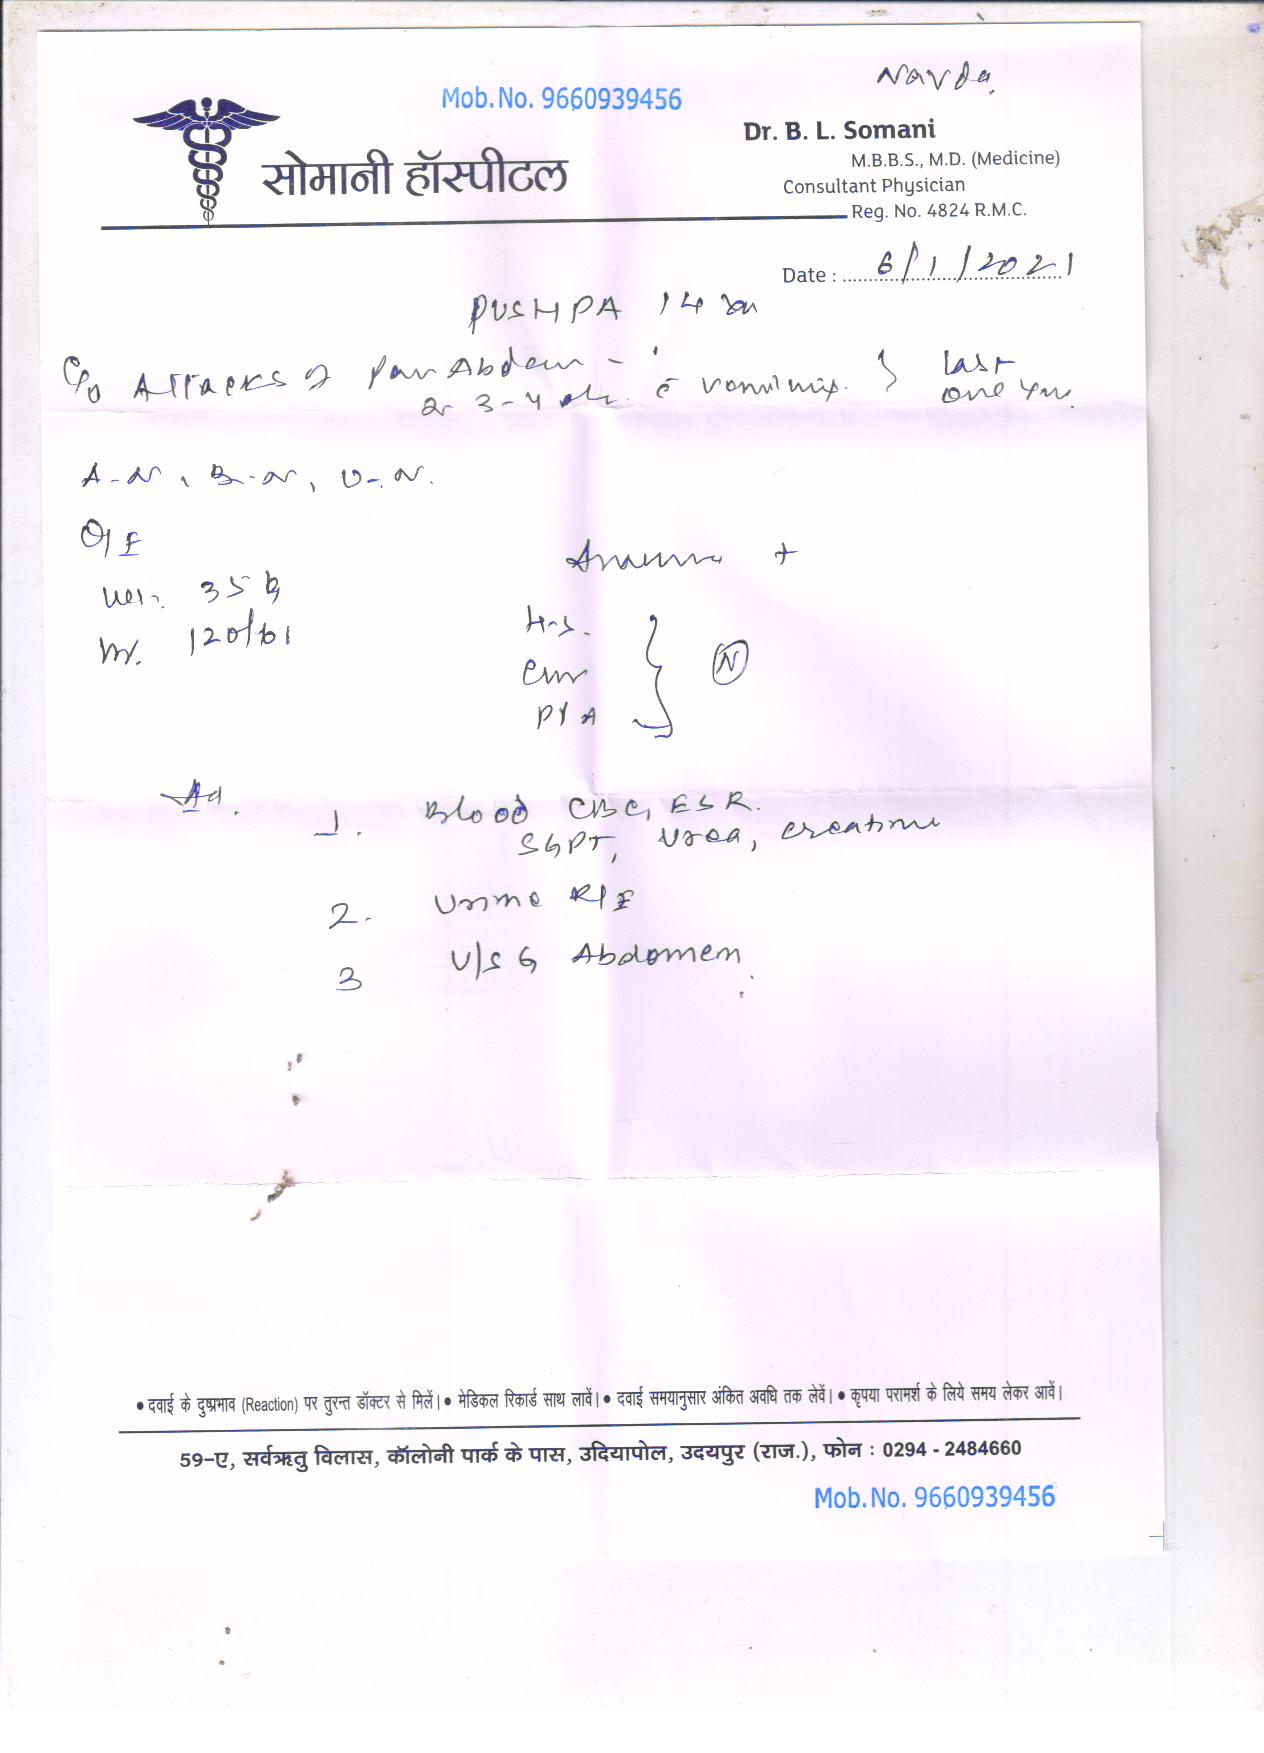 Navda.
Mob.No. 9660939456
Dr. B. L. Somani
M.B.B.S., M.D. (Medicine)
Consultant Physician
Reg. No. 4824 R.M.C.
सोमानी हॉस्पीटल
Date : 6/1/2021
PUSHPA 14
C/o Attacks of Pain Abdom - last
3-4 c vomiting. } one yr.
A-N, B-N, U-N.
O/E
Anaemia +
35 kg
H-S.
120/
(N)
P/A
Ad.
1. Blood CBC, ESR.
SGPT, Urea, creatinine
2. Urine R/E
3 U/S G Abdomen
• दवाई के दुष्प्रभाव (Reaction) पर तुरन्त डॉक्टर से मिलें। • मेडिकल रिकार्ड साथ लावें। • दवाई समयानुसार अंकित अवधि तक लेवें। • कृपया परामर्श के लिये समय लेकर आवें।
59-ए, सर्वऋतु विलास, कॉलोनी पार्क के पास, उदियापोल, उदयपुर (राज.), फोन : 0294 - 2484660
Mob.No. 9660939456